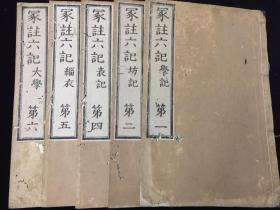 冢註六記 學記 第一
冢註六記 坊記 第二
冢註六記 表記 第四
冢註六記 緇衣 第五
冢註六記 大學 第六